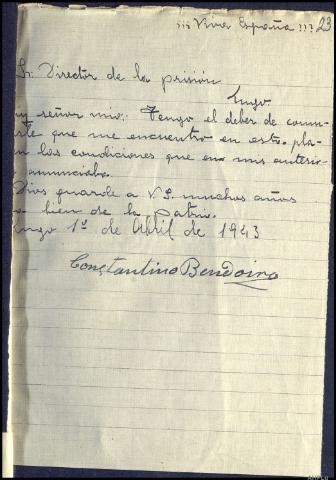 ¡¡¡Viva España!!! 23
Sr. Director de la prisión
Lugo
uy señor mio: Tengo el deber de comu-
rle que me encuentro en esta pla-
n las condiciones que en mis anterio-
anunciaba.
Dios guarde a V. S. muchos años
bien de la patria.
Lugo 1º de Abril de 1943
Constantino Bendoiro